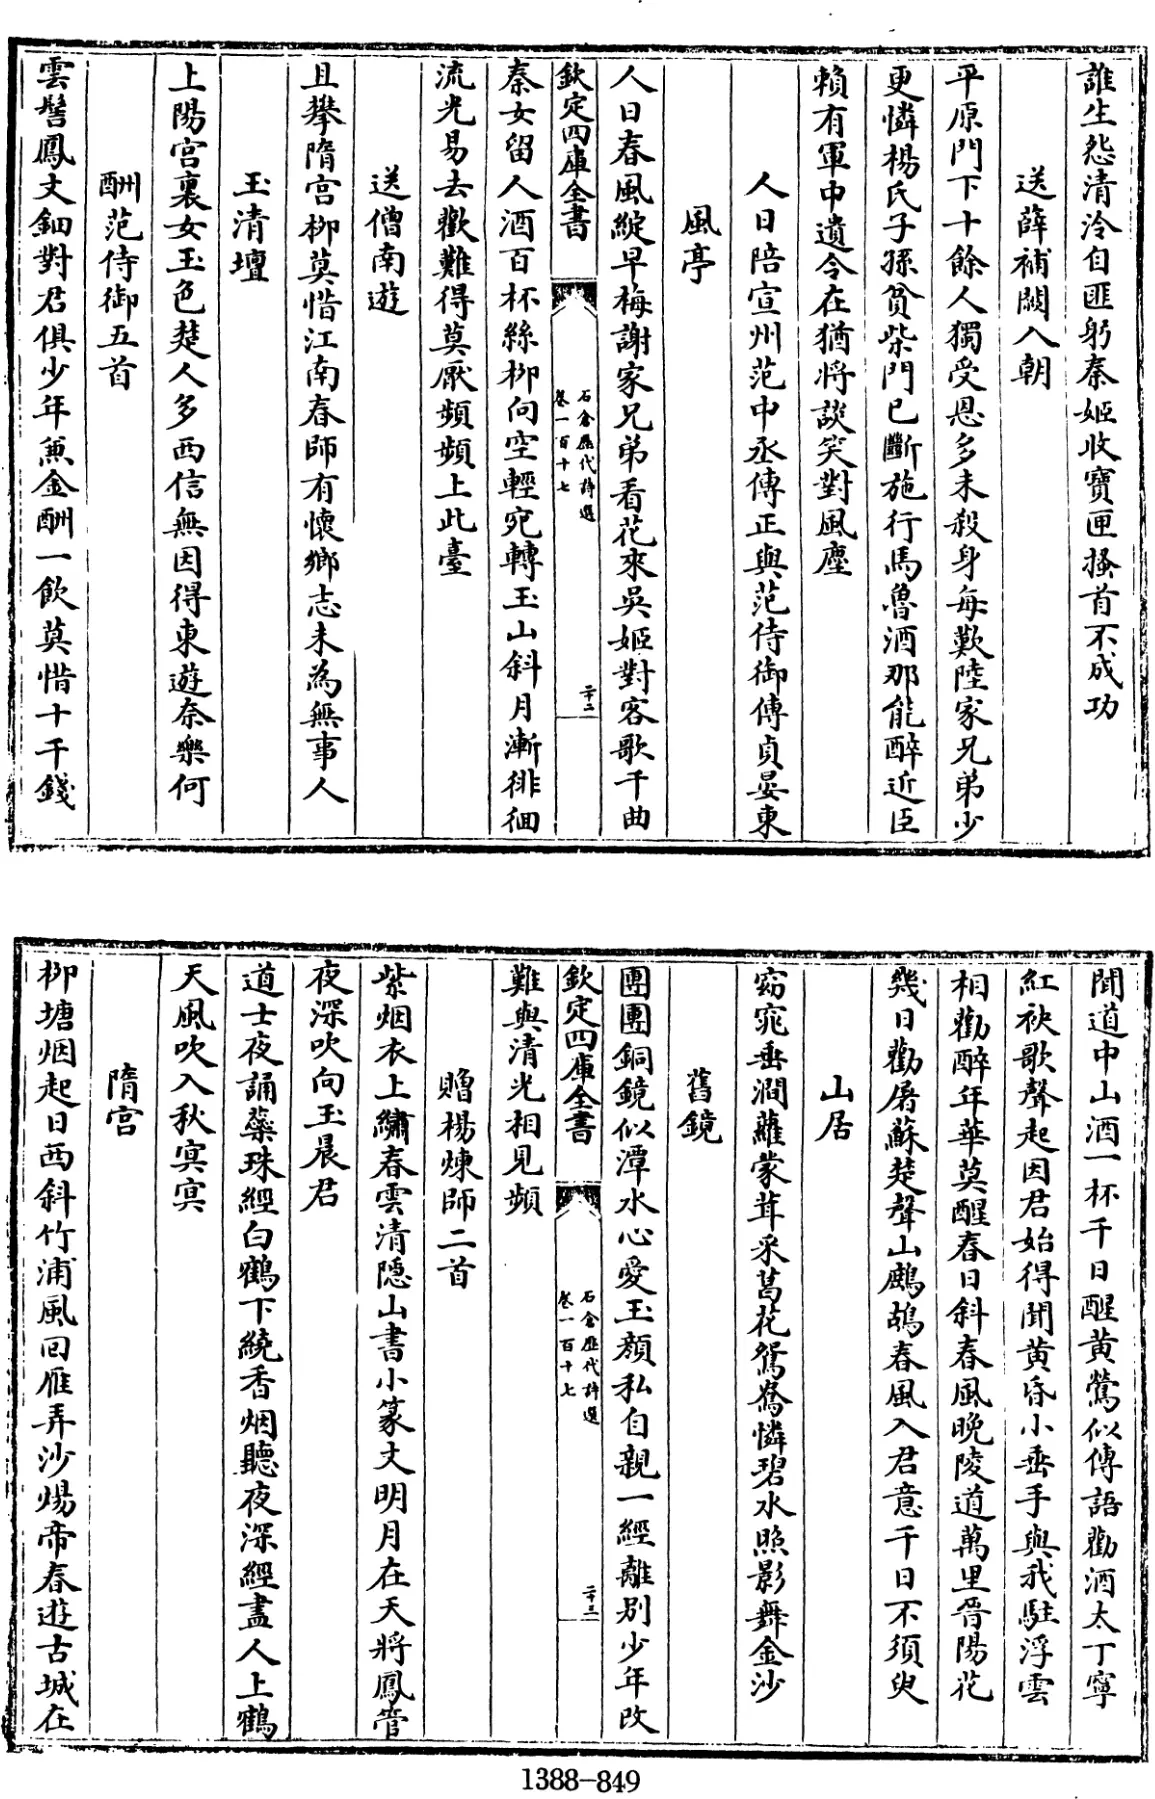 誰生怨清泠自匪躬秦姬收寶匣搔首不成功
送薛補闕入朝
平原門下十餘人獨受恩多未殺身每歎陸家兄弟少
更憐楊氏子孫貧柴門已斷施行馬魯酒那能醉近臣
賴有軍中遺令在猶將談笑對風塵
人日陪宣州范中丞傳正與范侍御傳貞晏東
風亭
人日春風綻早梅謝家兄弟看花來吳姬對客歌千曲
欽定四庫全書
石倉歷代詩選
卷一百十七
二十二
秦女留人酒百杯絲柳向空輕宛轉玉山斜月漸徘徊
流光易去歡難得莫厭頻頻上此臺
送僧南遊
且攀隋宫柳莫惜江南春師有懷鄉志未為無事人
玉清壇
上陽宫裏女玉色楚人多西信無因得東遊奈樂何
酬范侍御五首
雲髻鳳文鈿對君俱少年兼金酬一飲莫惜十千錢
聞道中山酒一杯千日醒黄鶯似傳語勸酒太丁寧
紅袂歌聲起因君始得聞黄昏小垂手與我駐浮雲
相勸醉年華莫醒春日斜春風晩陵道萬里晉陽花
幾日勸屠蘇楚聲山鷓鴣春風入君意千日不須臾
山居
窈窕垂澗蘿蒙茸采葛花鴛鴦憐碧水照影舞金沙
舊鏡
團團銅鏡似潭水心愛玉顔私自親一經離别少年改
欽定四庫全書
石倉歷代詩選
卷一百十七
二十三
難與清光相見頻
贈楊煉師二首
紫烟衣上繡春雲清隱山書小篆文明月在天將鳳管
夜深吹向玉晨君
道士夜誦蘂珠經白鶴下繞香烟聽夜深經盡人上鶴
天風吹入秋冥冥
隋宫
柳塘烟起日西斜竹浦風回雁弄沙煬帝春遊古城在
1388-849